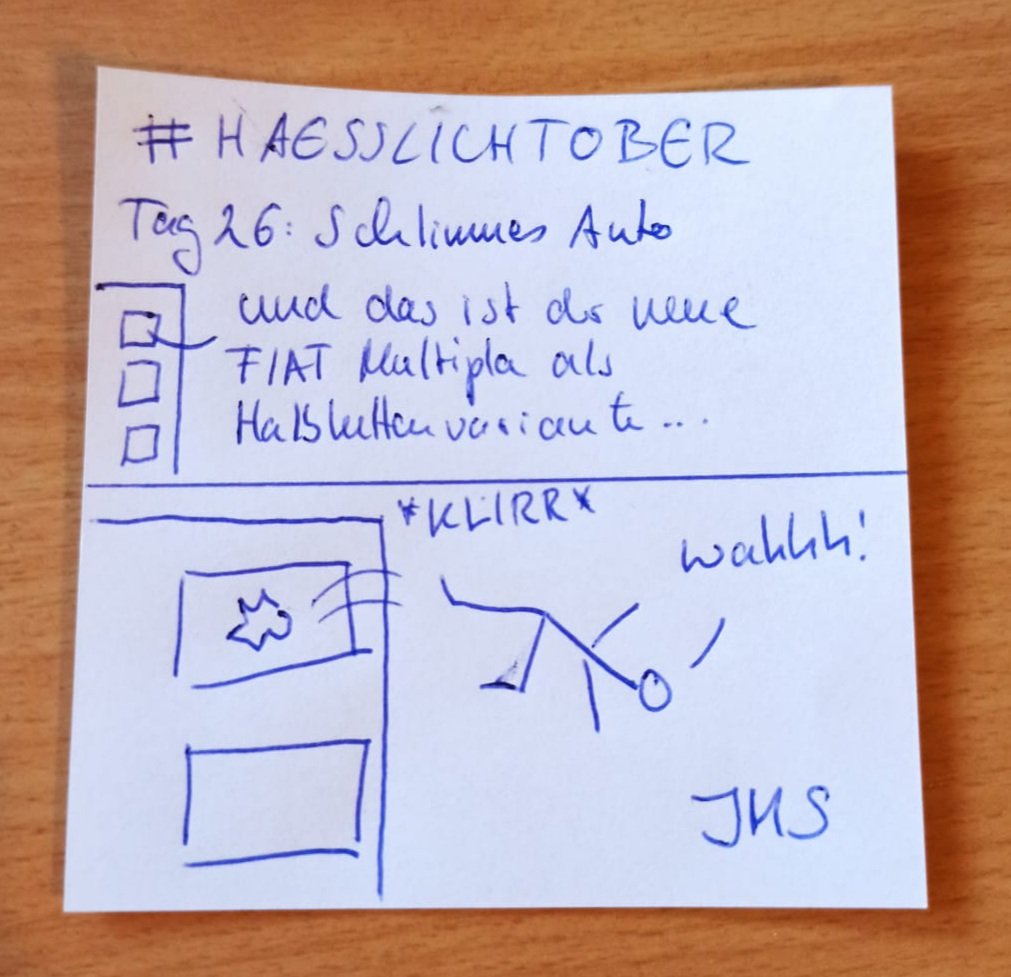 #HAESSLICHTOBER
Tag 26: Schlimmes Auto
und das ist der neue
FIAT Multipla als
Halbkettenvariante...
*KLIRR*
wahhh!
JHS